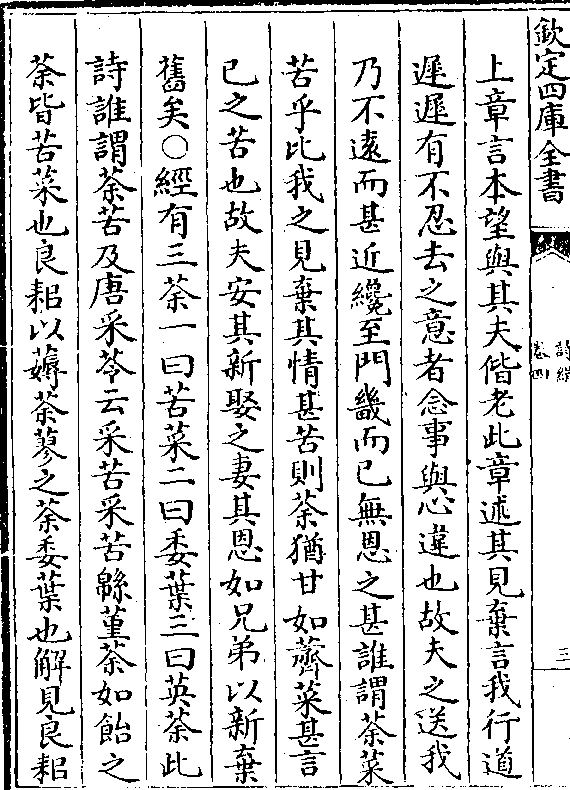 欽定四庫全書
詩緝
卷四
三
上章言本望與其夫偕老此章述其見棄言我行道
遲遲有不忍去之意者念事與心違也故夫之送我
乃不遠而甚近纔至門畿而已無恩之甚誰謂荼菜
苦乎比我之見棄其情甚苦則荼猶甘如薺菜甚言
已之苦也故夫安其新娶之妻其恩如兄弟以新棄
舊矣○經有三荼一曰苦菜二曰委葉三曰英荼此
詩誰謂荼苦及唐采苓云采苦采苦緜菫荼如飴之
荼皆苦菜也良耜以薅荼蓼之荼委葉也解見良耜